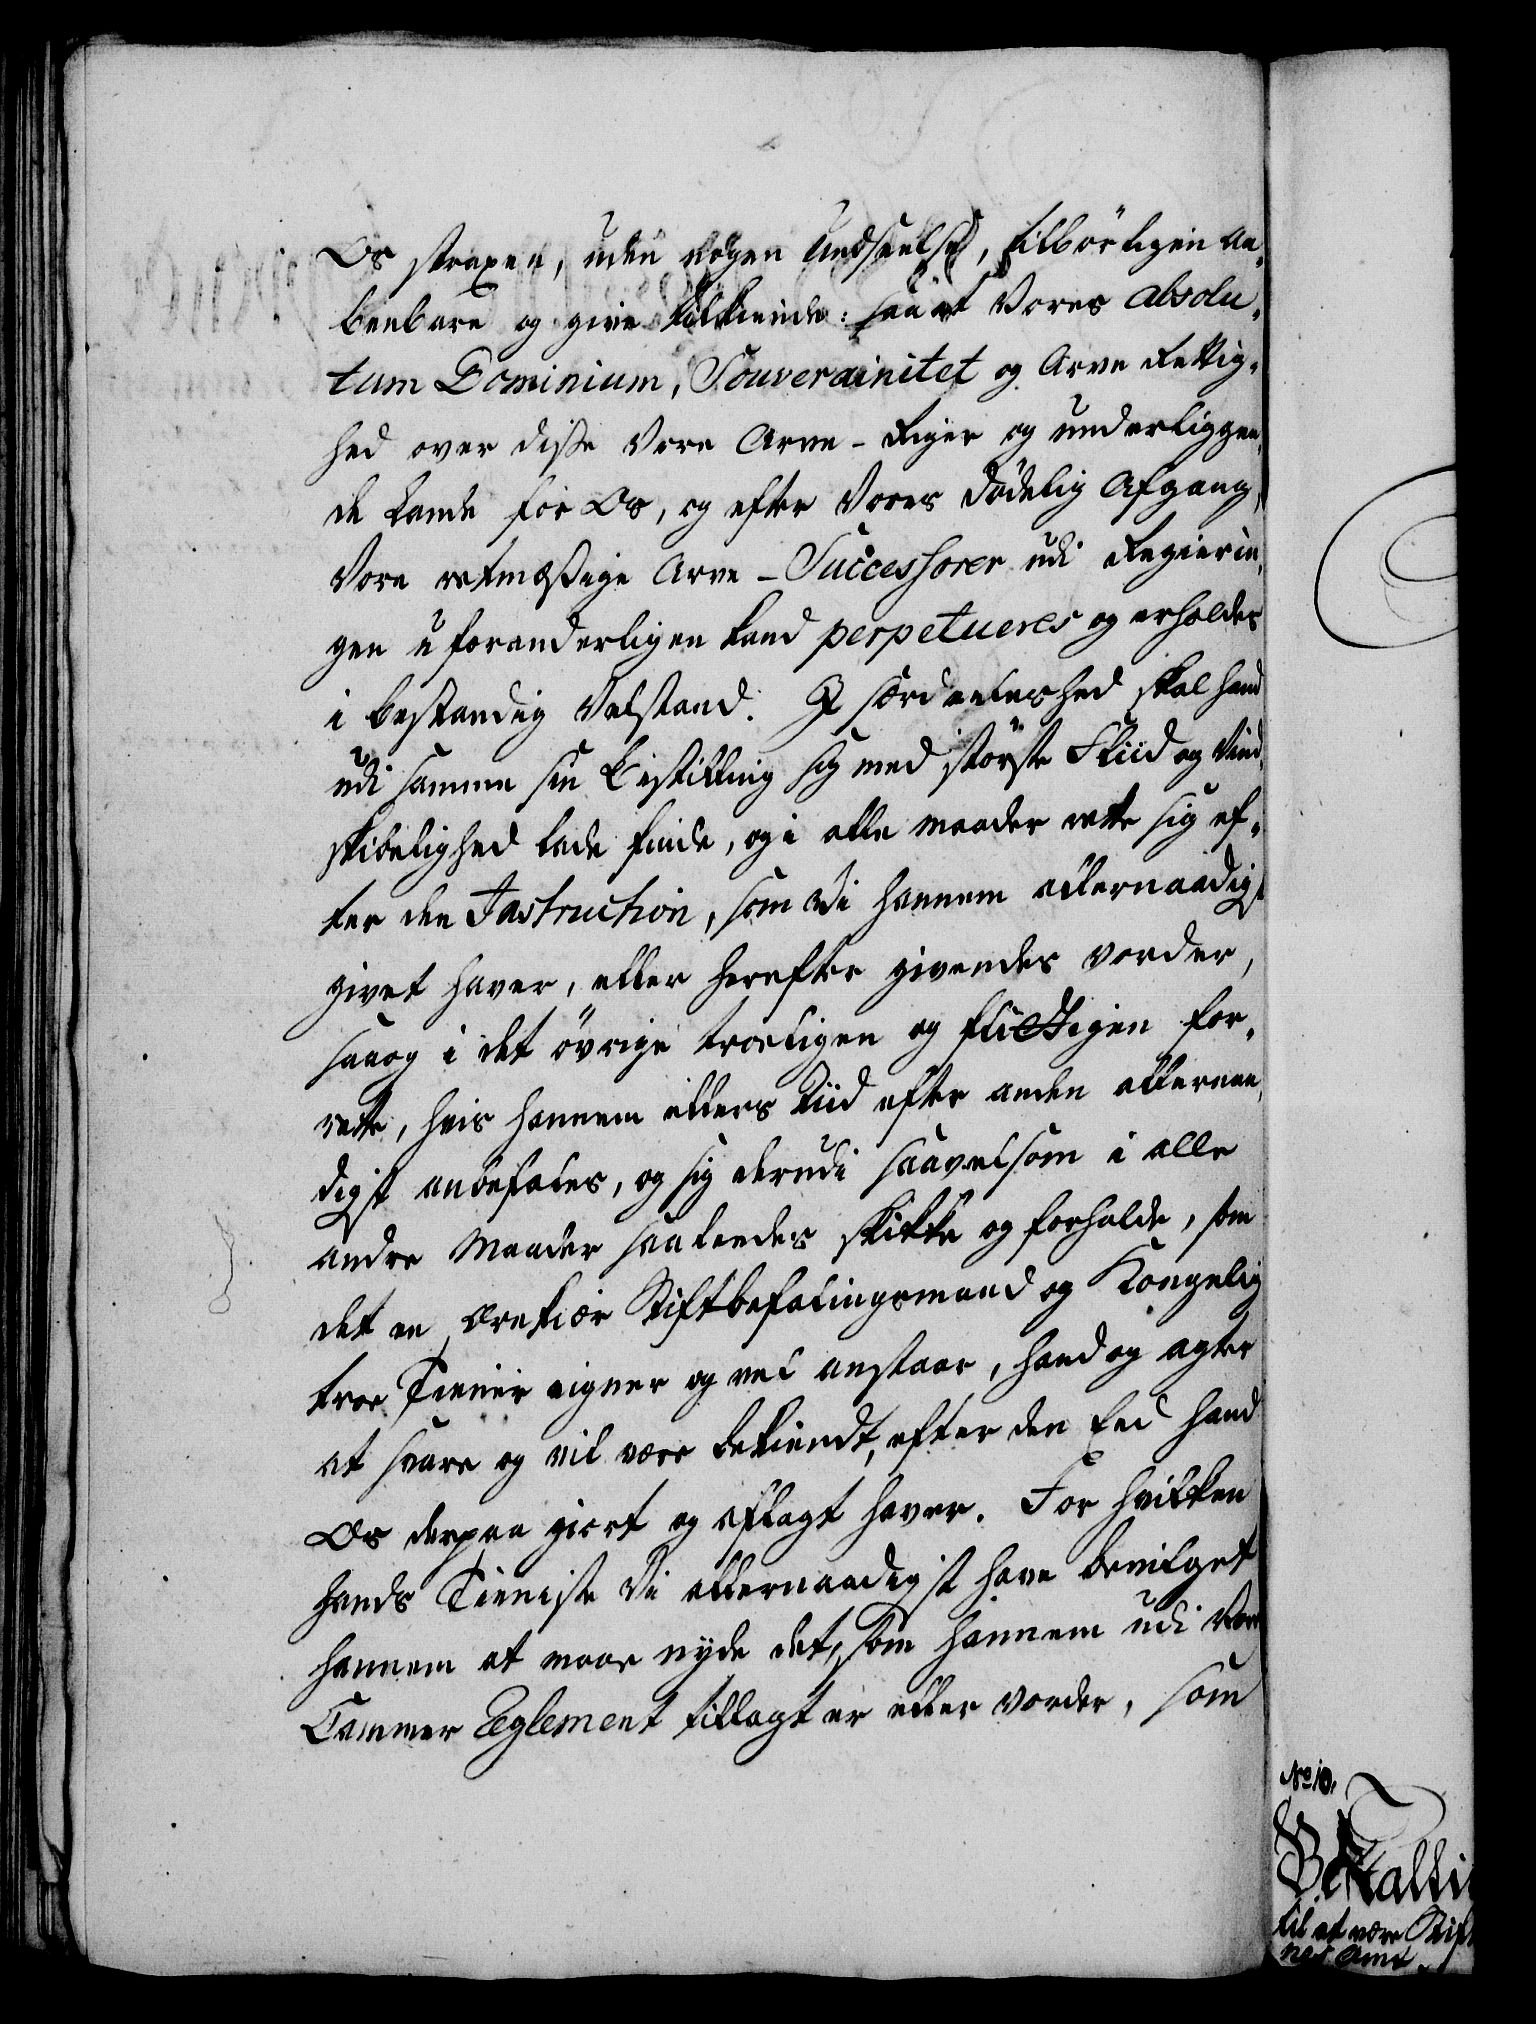 Os strapen, uden nogen Undseelse, tilbörligen aa-
benbare og give tilkiende: saa at Vores absolu-
tum Dominium, Souverainitet og Arve Rettig-
hed over disse Vore Arve-Riger og underliggen-
de Lande for Os, og efter Vores dödelig Afgang,
Vore retmæssige Arve-Successorer udi Regierin-
gen uforanderligen kand perpetueres og erholdes
i bestandig Velstand. I særdeeleshed skal hand
udi samme sin Bestilling sig med störste Fliid og Vind-
skibelighed lade finde, og i alle maader rette sig ef-
ter den Instruction, som Vi hannem allernaadigst
givet haver, eller herefter givendes vorder,
saa og i det övrige troeligen og flittigen for-
rette, hvis hannem ellers Tiid efter anden allernaa-
digst anbefales, og sig derudi saavelsom i alle
andre Maader saaledes skikke og forholde, som
det en ærekiær Stiftbefalingsmand og Kongelig
troe Tiener eigner og vel anstaar, hand og agter
at svare og vil være bekiendt, efter den Eed hand
Os derpaa giort og aflagt haver. For hvilken
hands Tieniste Vi allernaadigst have bevilget
hannem at maae nyde det, som hannem udi Vor
Cammer Reglement tillagt er eller vorder, som
No 10.
Bestalli
til at være Stift
Amt